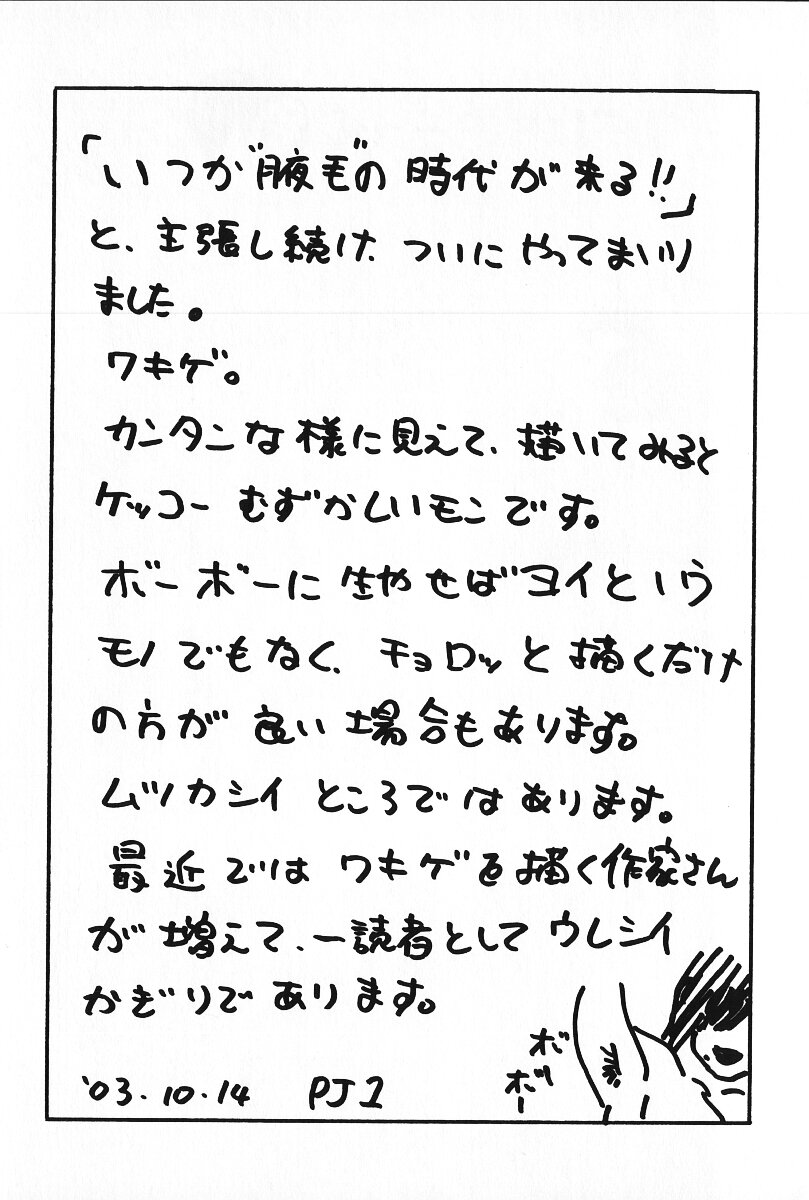 「いつか"腋毛"の時代が来る!!」
と、主張し続け、ついにやってまいり
ました。
ワキゲ。
カンタンな様に見えて、描いてみると
ケッコーむずかしいモンです。
ボーボーに生やせばヨイという
モノでもなく、チョロッと描くだけ
の方が良い場合もあります。
ムツカシイところではあります。
最近ではワキゲを描く作家さん
が増えて、一読者としてウレシイ
かぎりであります。
'03.10.14 PJ1
ボ
ボー